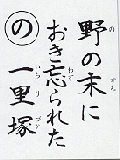 野の末に
おき忘られた
の
一里塚